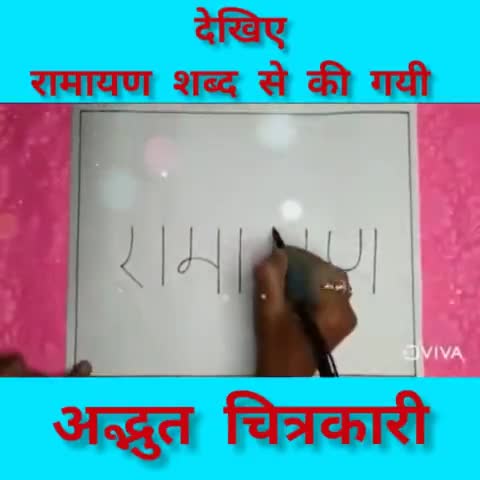 देखिए
रामायण शब्द से की गयी
रामा ण
VIVA
अद्भुत चित्रकारी